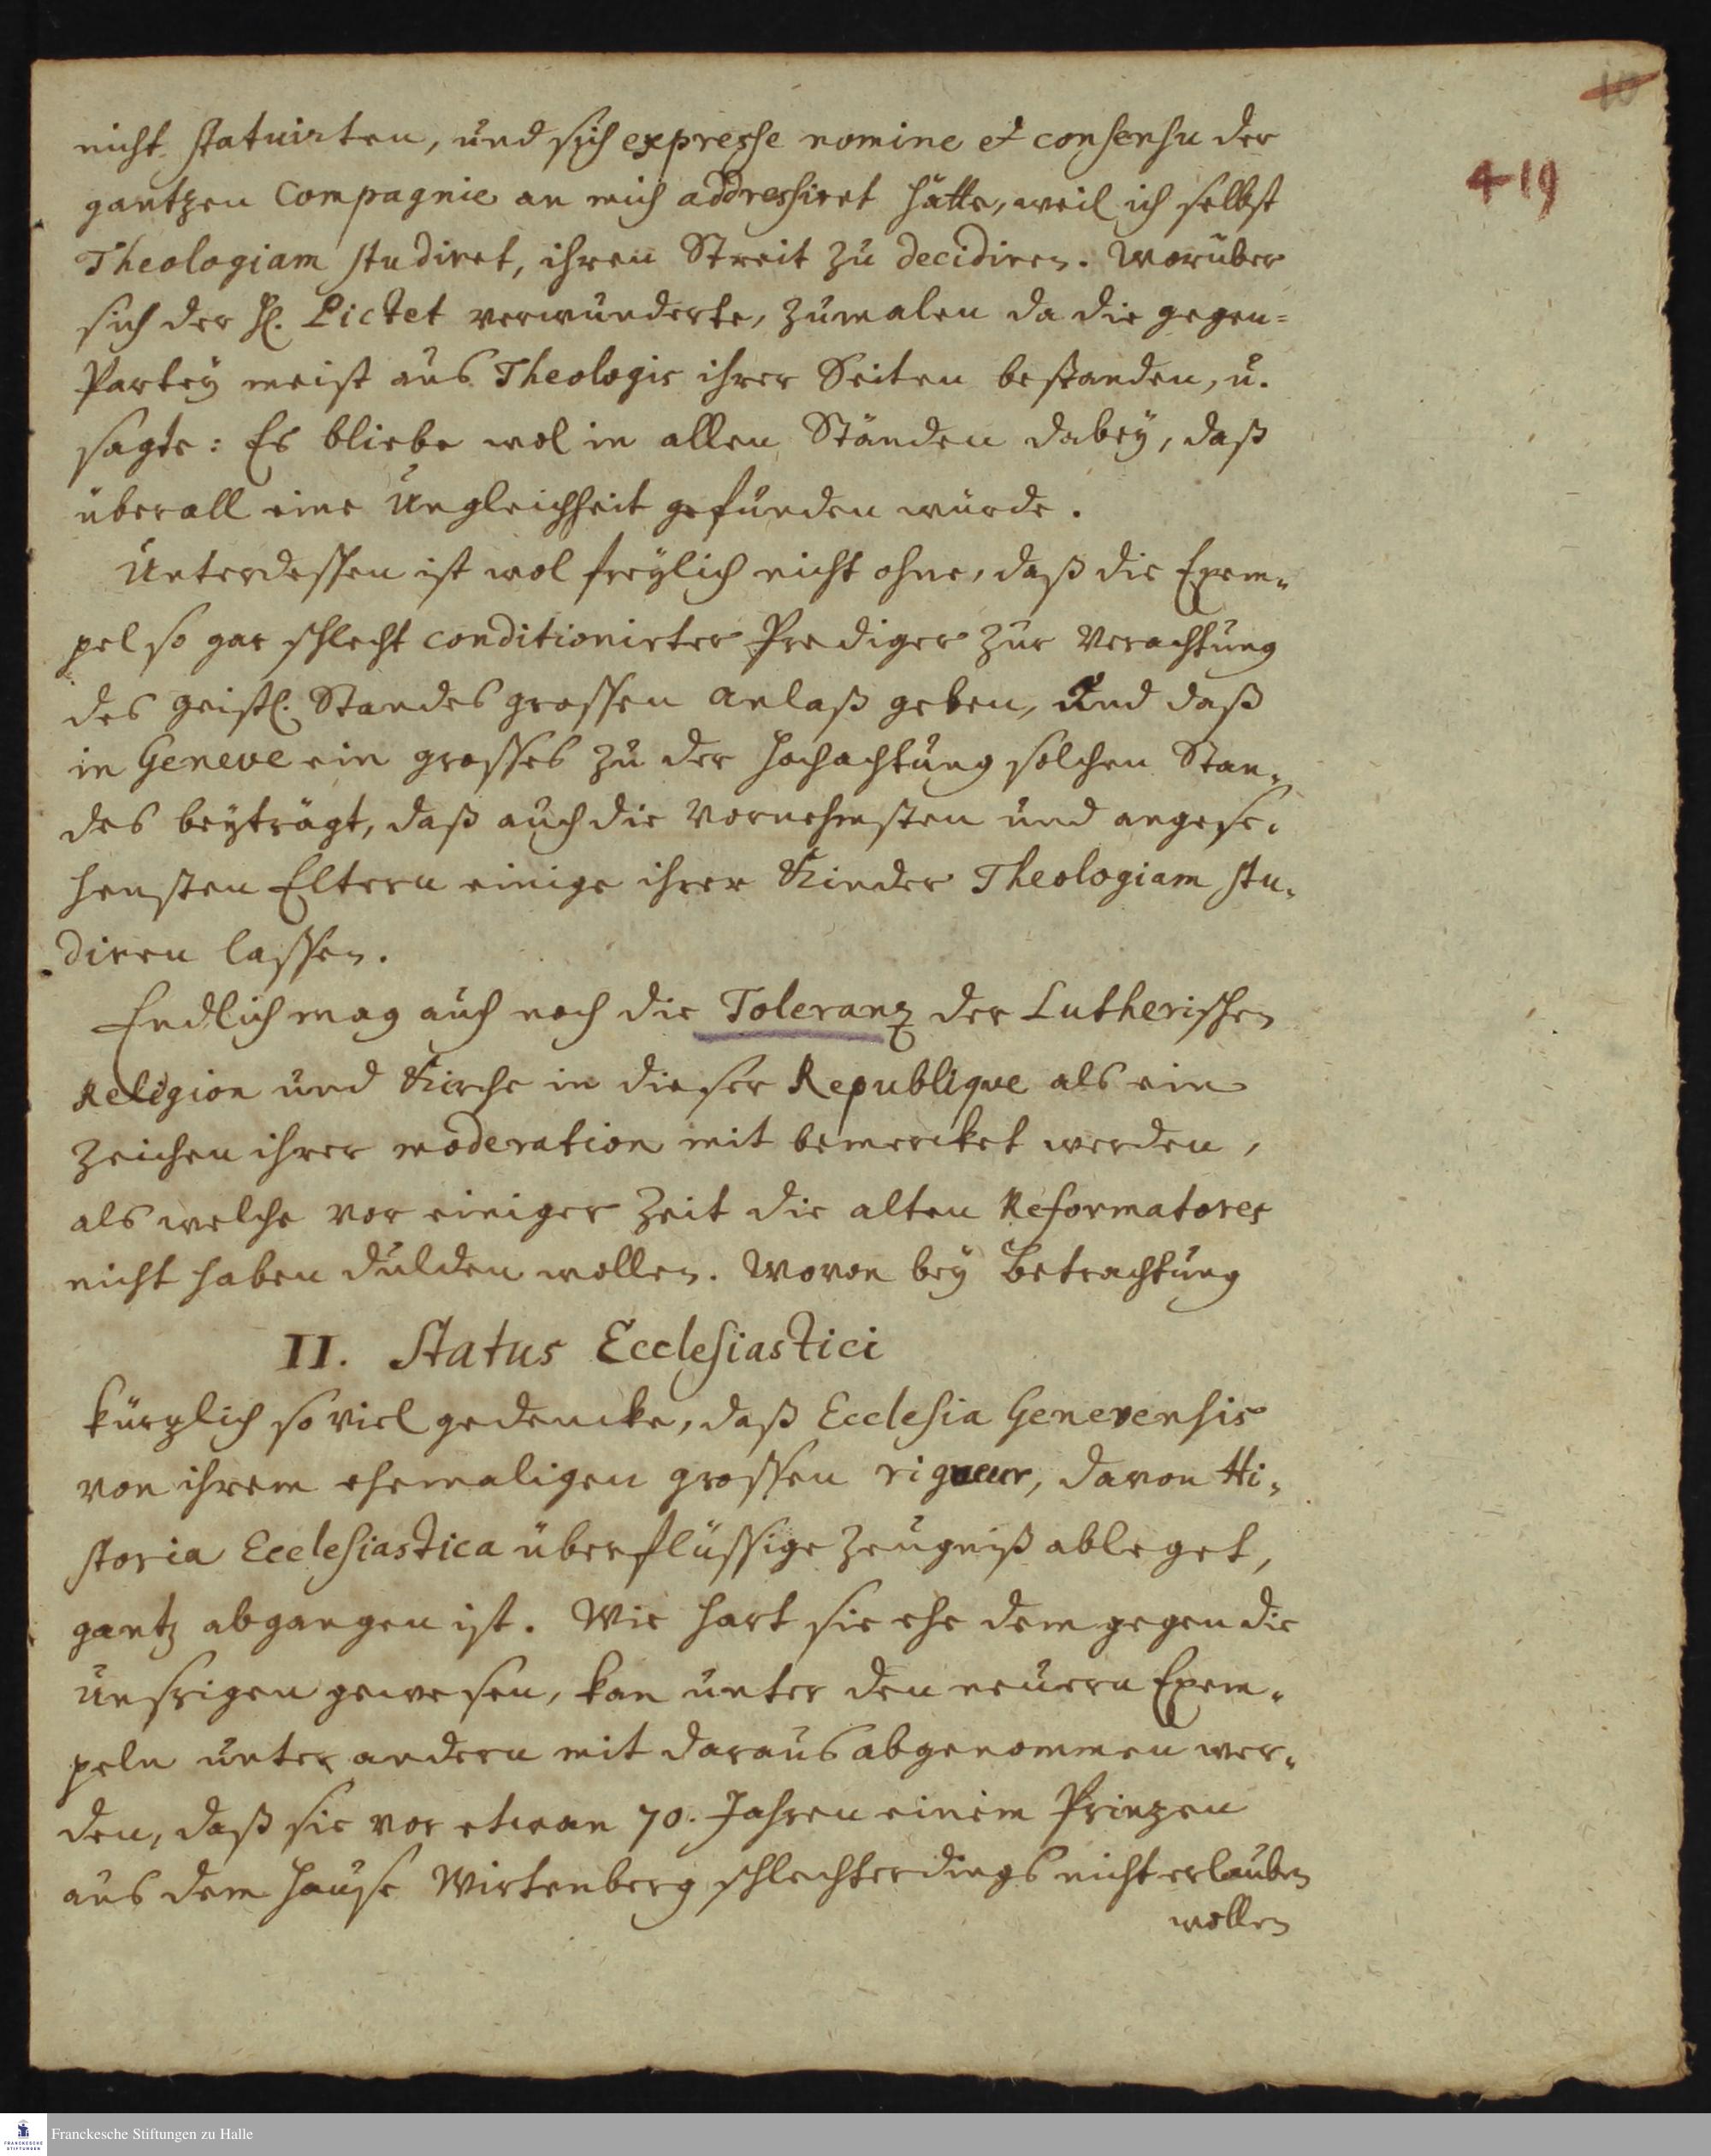 10
4 19
nicht statuirten, und sich expresse nomine et consensu der
gantzen Compagnie an mich addressiret hätte, weil ich selbst
Theologiam studiret, ihren Streit zu decidiren. Worüber
sich der H. Pictet verwunderte, zumalen da die gegen=
Partey meist aus Theologis ihrer Seiten bestanden, u.
sagte: Es bliebe wol in allen Ständen dabey, daß
überall eine Ungleichheit gefunden würde.
Unterdessen ist wol freylich nicht ohne, daß die Exem-
pel so gar schlecht conditionirter Prediger zur Verachtung
des geistl. Standes grossen anlaß geben, Und daß
in Geneve ein grosses zu der Hochachtung solchen Stan-
des beyträgt, daß auch die Vornehmsten und angese-
hensten Eltern einige ihrer Kinder Theologiam stu-
diren lassen.
Endlich mag auch noch die Toleranz der Lutherischen
Religion und Kirche in dieser Republique als ein
Zeichen ihrer moderation mit bemercket werden,
als welche vor einiger Zeit die alten Reformatores
nicht haben dulden wollen. Wovon bey Betrachtung
II. Status Ecclesiastici
kürzlich so viel gedencke, daß Ecclesia Genevensis
von ihrem ehemaligen grossen rigueur, davon Hi-
storia Ecclesiastica überflüssige Zeugniß ableget,
gantz abgangen ist. Wie hart sie ehe dem gegen die
Unsrigen gewesen, kan unter den neuern Exem-
peln unter andern mit daraus abgenommen wer-
den, daß sie vor etwan 70. Jahren einem Prinzen
aus dem Hause Wirtenberg schlechterdings nicht erlauben
wollen
Franckesche Stiftungen zu Halle